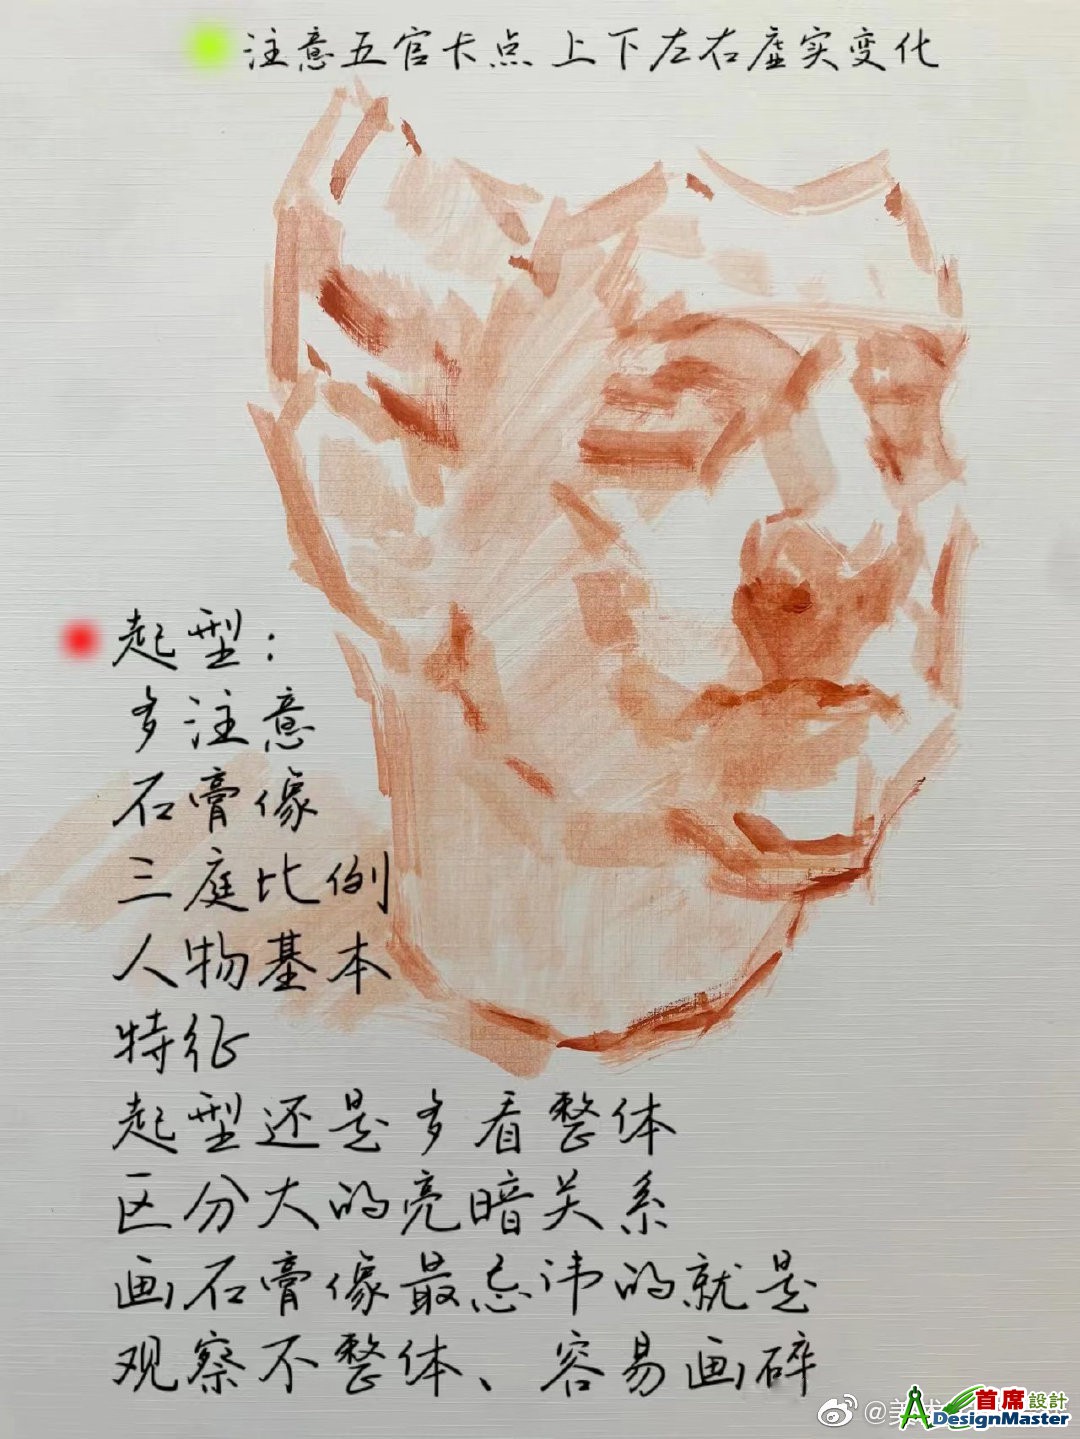 注意五官卡点 上下左右虚实变化
起型：
多注意
石膏像
三庭比例
人物基本
特征
起型还是多看整体
区分大的亮暗关系
画石膏像最忌讳的就是
观察不整体、容易画碎
@美
首席設計
ADesignMaster